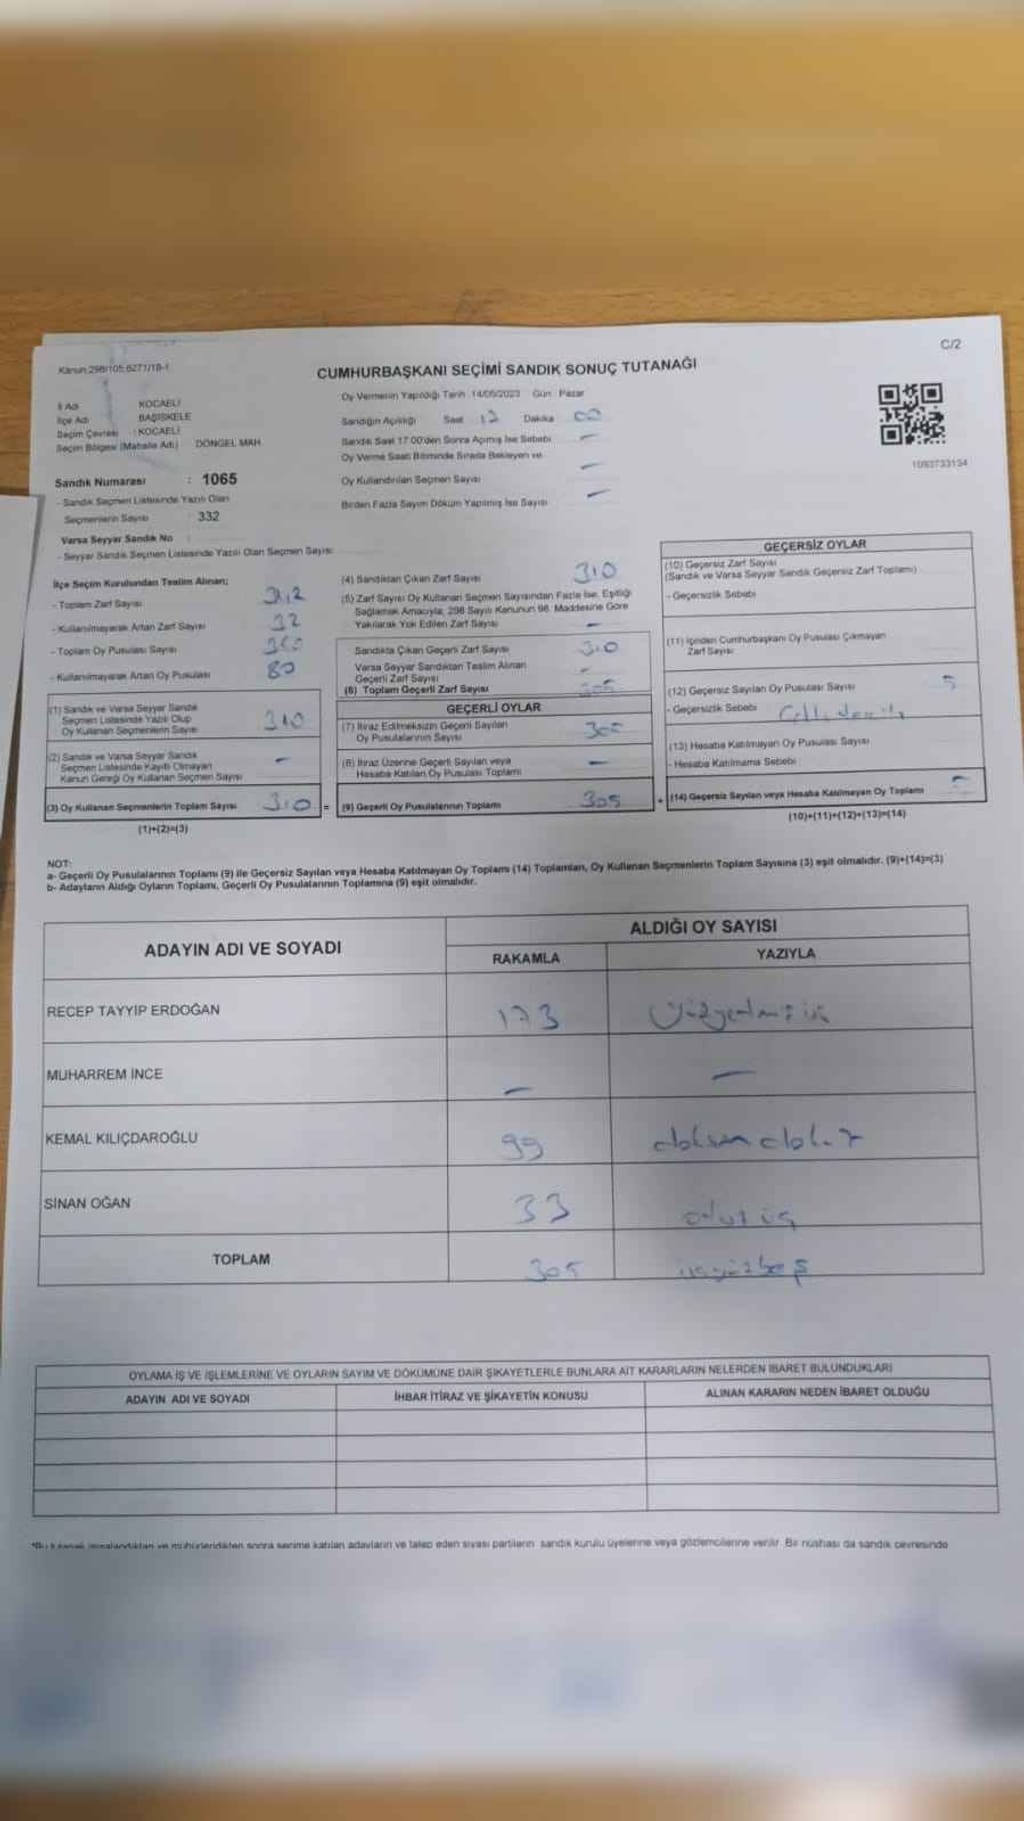 C/2
Kanun:298/105,6271/18-1
CUMHURBAŞKANI SEÇİMİ SANDIK SONUÇ TUTANAĞI
Oy Vermenin Yapıldığı Tarih :14/05/2023 Gün : Pazar
İl Adı : KOCAELİ
İlçe Adı : BAŞİSKELE
Seçim Çevresi : KOCAELİ
Seçim Bölgesi (Mahalle Adı) : DÖNGEL MAH.
Sandığın Açıldığı Saat 17 Dakika 00
Sandık Saat 17:00'den Sonra Açılmış İse Sebebi –
Oy Verme Saati Bitiminde Sırada Bekleyen ve
Oy Kullandırılan Seçmen Sayısı –
Birden Fazla Sayım Döküm Yapılmış İse Sayısı –
1093733134
Sandık Numarası : 1065
- Sandık Seçmen Listesinde Yazılı Olan
Seçmenlerin Sayısı : 332
Varsa Seyyar Sandık No :
- Seyyar Sandık Seçmen Listesinde Yazılı Olan Seçmen Sayısı:
İlçe Seçim Kurulundan Teslim Alınan;
- Toplam Zarf Sayısı
- Kullanılmayarak Artan Zarf Sayısı 32
- Toplam Oy Pusulası Sayısı
- Kullanılmayarak Artan Oy Pusulası 80
(1) Sandık ve Varsa Seyyar Sandık
Seçmen Listesinde Yazılı Olup
Oy Kullanan Seçmenlerin Sayısı 310
(2) Sandık ve Varsa Seyyar Sandık
Seçmen Listesinde Kayıtlı Olmayan
Kanun Gereği Oy Kullanan Seçmen Sayısı –
(3) Oy Kullanan Seçmenlerin Toplam Sayısı 310 =
(1)+(2)=(3)
(4) Sandıktan Çıkan Zarf Sayısı 310
(5) Zarf Sayısı Oy Kullanan Seçmen Sayısından Fazla İse, Eşitliği
Sağlamak Amacıyla, 298 Sayılı Kanunun 98. Maddesine Göre
Yakılarak Yok Edilen Zarf Sayısı –
Sandıkta Çıkan Geçerli Zarf Sayısı 310
Varsa Seyyar Sandıktan Teslim Alınan
Geçerli Zarf Sayısı –
(6) Toplam Geçerli Zarf Sayısı 305
GEÇERLİ OYLAR
(7) İtiraz Edilmeksizin Geçerli Sayılan
Oy Pusulalarının Sayısı 305
(8) İtiraz Üzerine Geçerli Sayılan veya
Hesaba Katılan Oy Pusulası Toplamı –
(9) Geçerli Oy Pusulalarının Toplamı 305 +
GEÇERSİZ OYLAR
(10) Geçersiz Zarf Sayısı
(Sandık ve Varsa Seyyar Sandık Geçersiz Zarf Toplamı)
- Geçersizlik Sebebi
(11) İçinden Cumhurbaşkanı Oy Pusulası Çıkmayan
Zarf Sayısı
(12) Geçersiz Sayılan Oy Pusulası Sayısı 5
- Geçersizlik Sebebi
(13) Hesaba Katılmayan Oy Pusulası Sayısı
- Hesaba Katılmama Sebebi
(14) Geçersiz Sayılan veya Hesaba Katılmayan Oy Toplamı
(10)+(11)+(12)+(13)=(14)
NOT:
a- Geçerli Oy Pusulalarının Toplamı (9) ile Geçersiz Sayılan veya Hesaba Katılmayan Oy Toplamı (14) Toplamları, Oy Kullanan Seçmenlerin Toplam Sayısına (3) eşit olmalıdır. (9)+(14)=(3)
b- Adayların Aldığı Oyların Toplamı, Geçerli Oy Pusulalarının Toplamına (9) eşit olmalıdır.
ADAYIN ADI VE SOYADI
ALDIĞI OY SAYISI
RAKAMLA YAZIYLA
RECEP TAYYİP ERDOĞAN 173
MUHARREM İNCE – –
KEMAL KILIÇDAROĞLU 99 doksandokuz
SİNAN OĞAN 33 otuzüç
TOPLAM 305 üçyüzbeş
OYLAMA İŞ VE İŞLEMLERİNE VE OYLARIN SAYIM VE DÖKÜMÜNE DAİR ŞİKAYETLERLE BUNLARA AİT KARARLARIN NELERDEN İBARET BULUNDUKLARI
ADAYIN ADI VE SOYADI İHBAR İTİRAZ VE ŞİKAYETİN KONUSU ALINAN KARARIN NEDEN İBARET OLDUĞU
*Bu tutanak imzalandıktan ve mühürlendikten sonra seçime katılan adayların ve talep eden siyasi partilerin sandık kurulu üyelerine veya gözlemcilerine verilir. Bir nüshası da sandık çevresinde